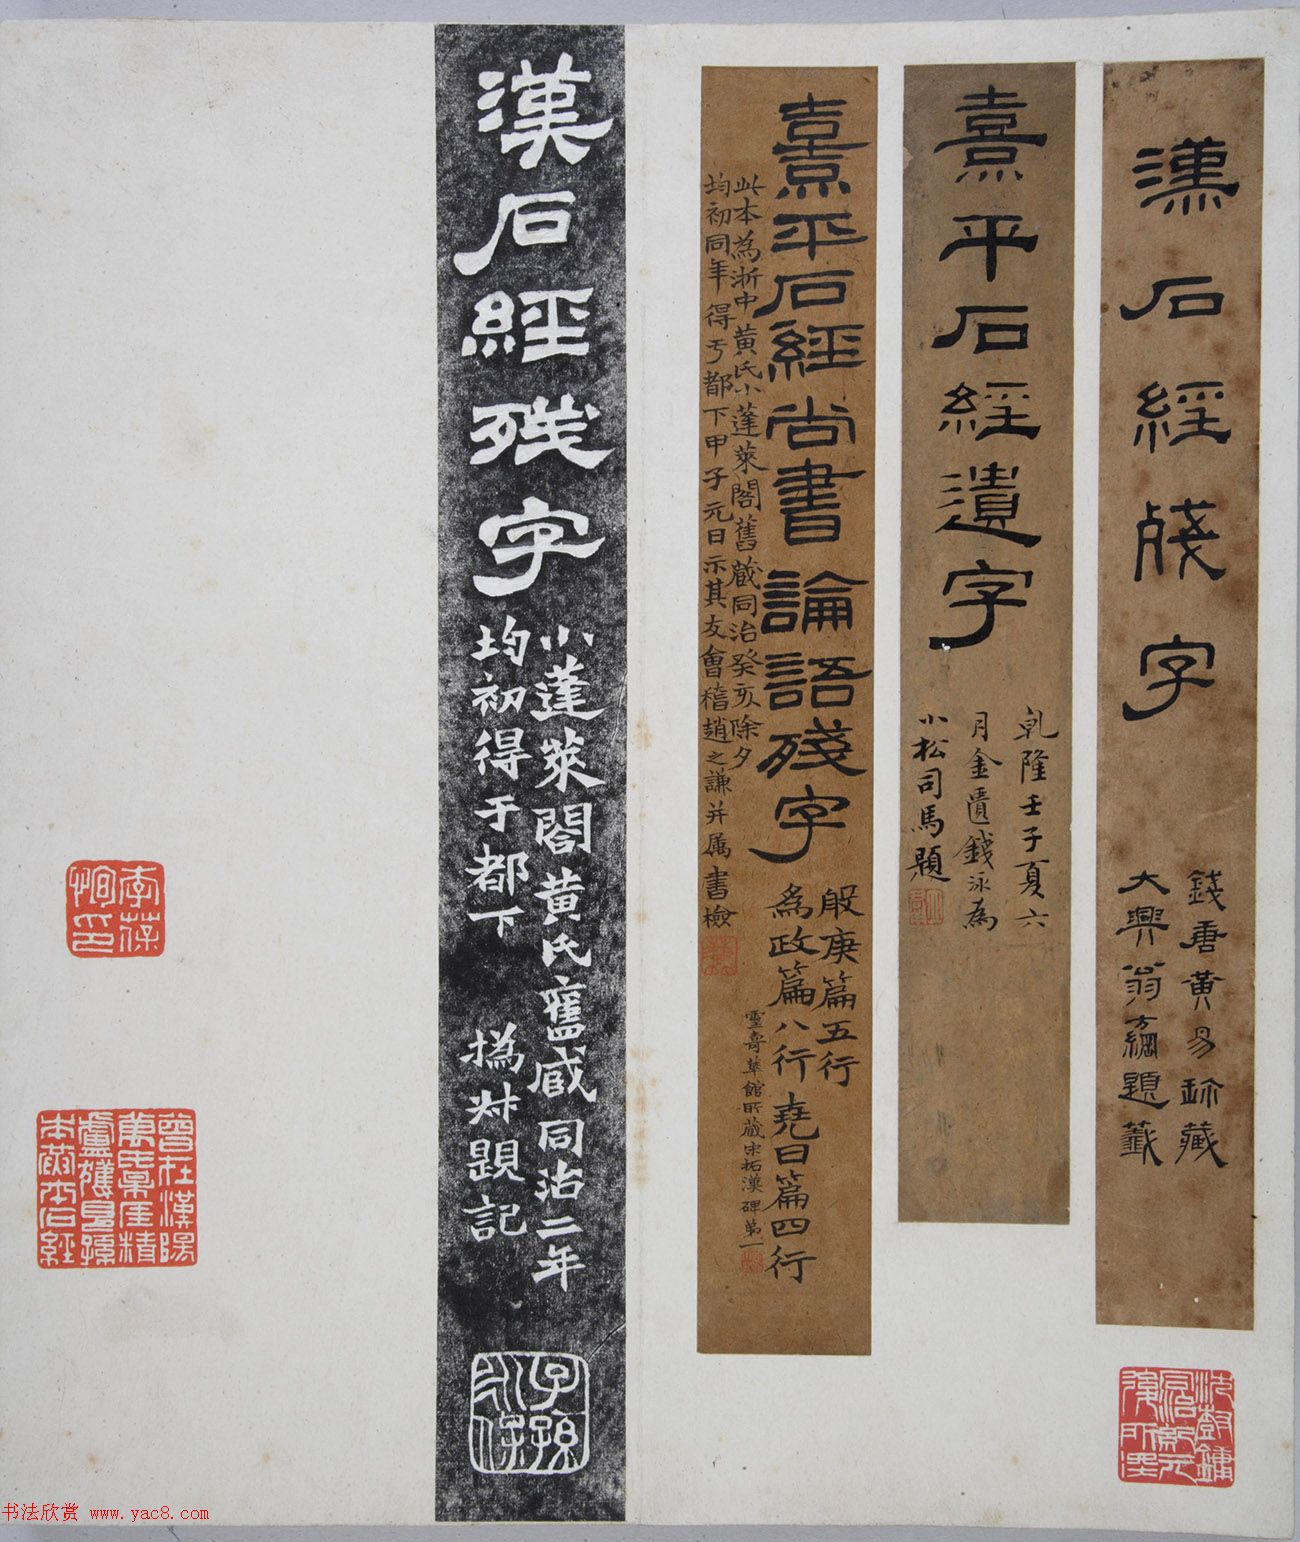 漢石經殘字
錢唐黃易珎藏
大興翁方綱題籤
熹平石經遺字
乾隆壬子夏六
月金匱錢泳為
小松司馬題
熹平石經尚書論語殘字
般庚篇五行
為政篇八行堯曰篇四行
此本為浙中黃氏小蓬萊閣舊藏同治癸亥除夕
均初同年得于都下甲子元日示其友會稽趙之謙并属書檢
靈壽華館所藏宋拓漢碑第一
漢石經殘字
小蓬萊閣黃氏舊臧同治二年
均初得于都下 撝叔題記
子孫
永保
李葆
恂印
曾在漢陽
萬中立
本石經
书法欣赏 www.yac8.com